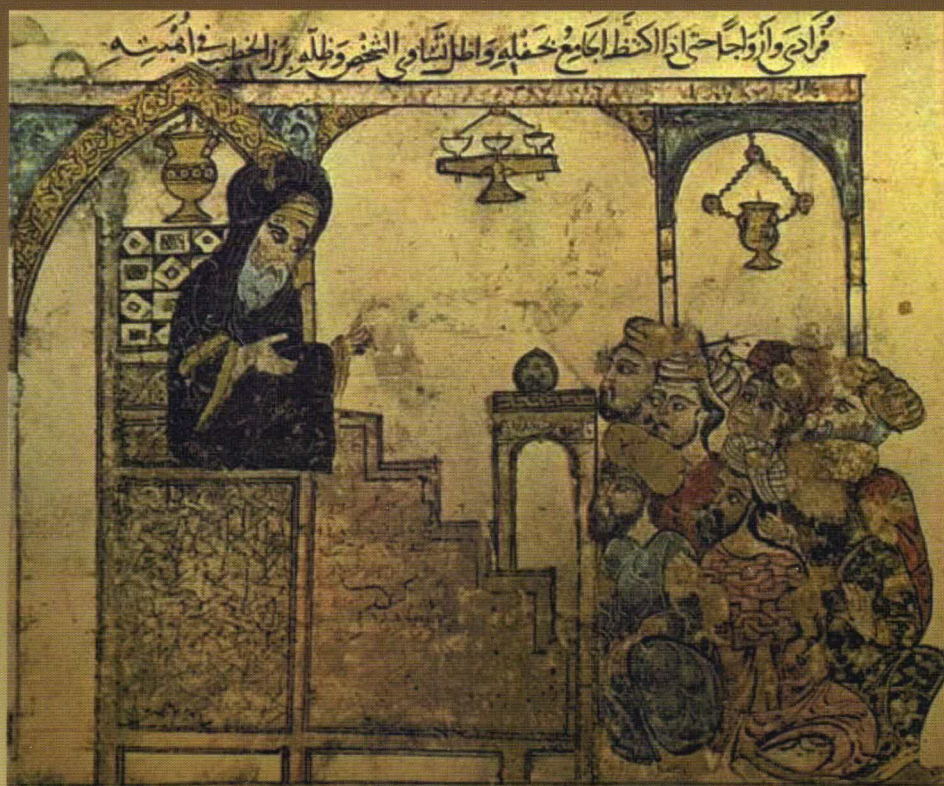 فُرَادَى وأزوَاجًا حتى اذا اكتظَّ الجامعُ بحَفلِهِ وَاظلَّ تَسَاوي الشخصِ وَظلِّهِ برزَ الخطيب في أُهْبَتِهِ